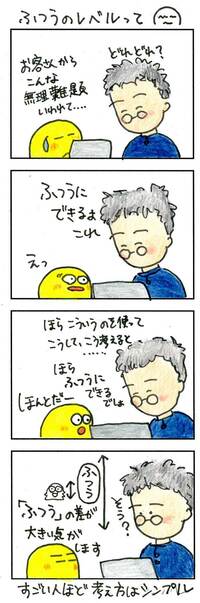 ふつうのレベルって
お客さんから
こんな
無理難題
いわれて....
どれどれ?
ふつうに
できるよ
これ
えっ
ほら こういうのを使って
こうして、こう考えると
......
ほら
ふつうに
できる
でしょ
ほんとだー
ふつう
そう?
「ふつう」の差が
大きい点が
します
すごい人ほど 考え方はシンプル